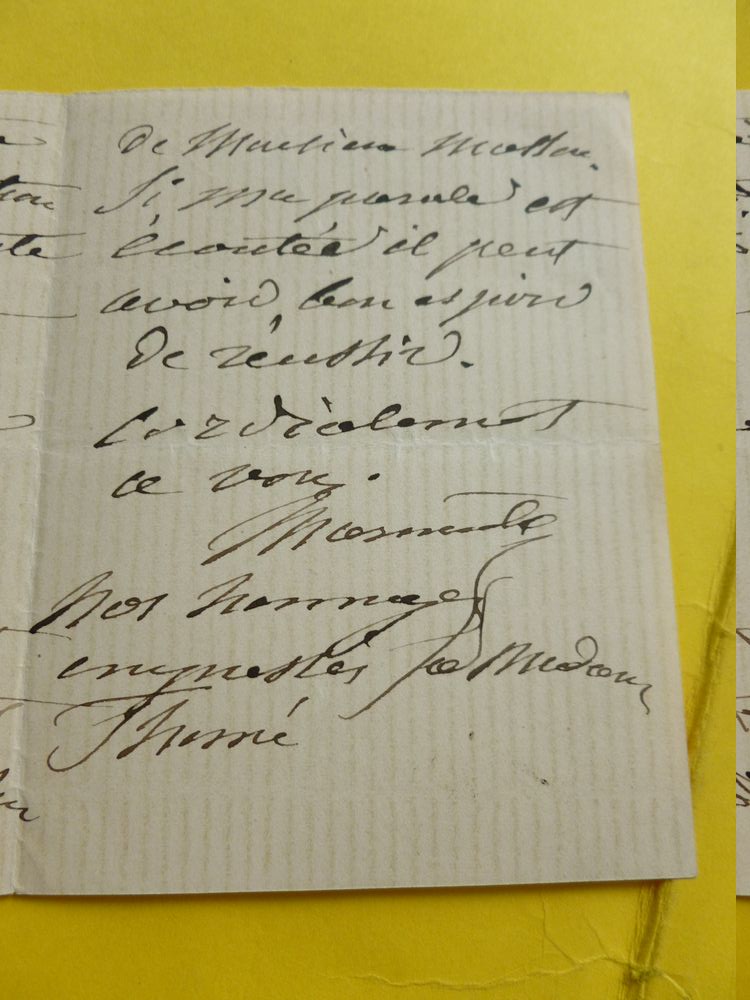 de Monsieur Masson.
Si ma parole est
écoutée il peut
avoir bon espoir
de réussir.
Cordialement
a vous.
Nos hommages
empressés a Madame
Thomé